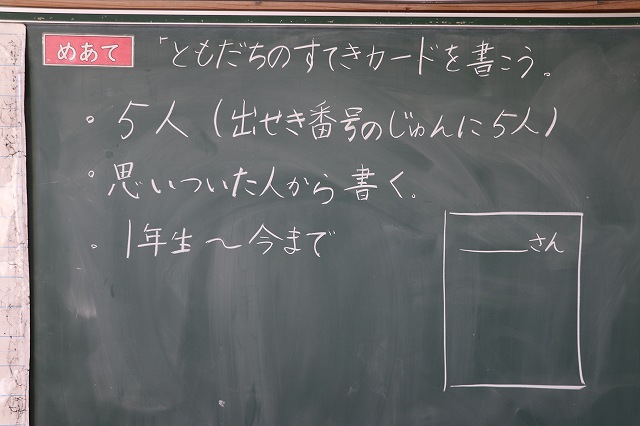 めあて 「ともだちのすてきカードを書こう。
・5人(出せき番号のじゅんに5人)
・思いついた人から書く。
・1年生〜今まで
___さん